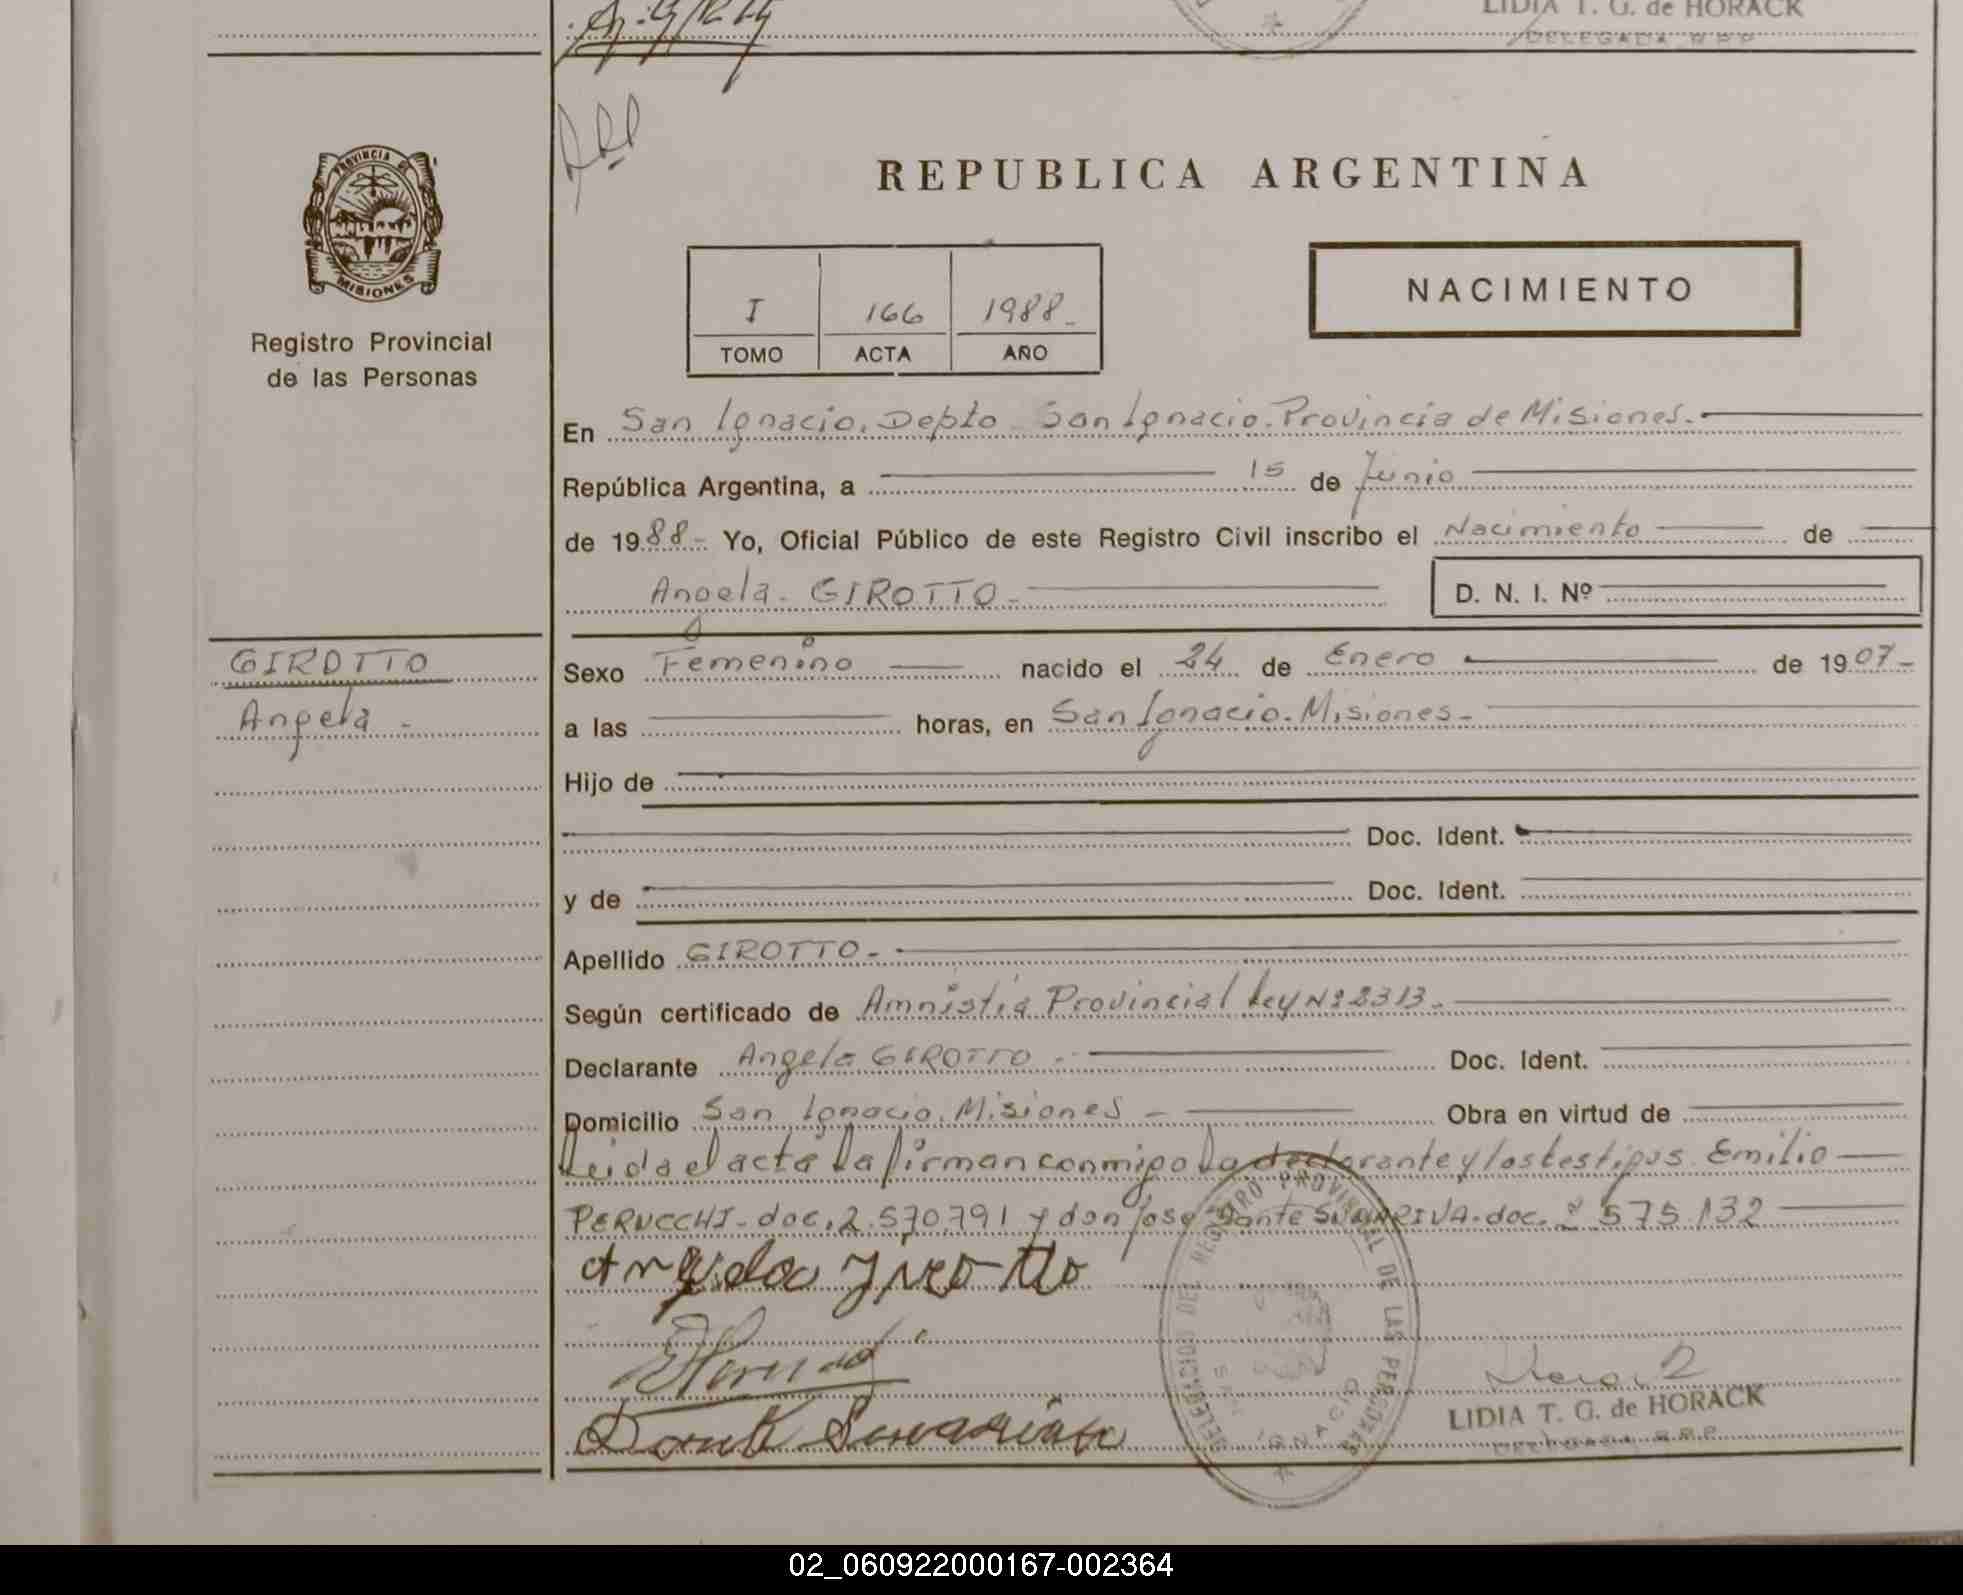 LIDIA T. G. de HORACK
DELEGADA R.P.P.
PROVINCIA DE
MISIONES
Registro Provincial
de las Personas
REPUBLICA ARGENTINA
I 166 1988
TOMO ACTA AÑO
NACIMIENTO
En San Ignacio. Depto San Ignacio. Provincia de Misiones.
República Argentina, a 15 de Junio
de 1988 Yo, Oficial Público de este Registro Civil inscribo el Nacimiento de
Angela GIROTTO D. N. I. Nº
GIROTTO
Angela
Sexo Femenino nacido el 24 de Enero de 1907
a las horas, en San Ignacio. Misiones
Hijo de
Doc. Ident.
y de Doc. Ident.
Apellido GIROTTO
Según certificado de Amnistia Provincial Ley Nº 2313.
Declarante Angela GIROTTO Doc. Ident.
Domicilio San Ignacio. Misiones Obra en virtud de
Leida el acta la firman conmigo la declarante y los testigos Emilio
PERUCCHI. doc. 2.570.791 y don Jose Dante doc. 575.132
Angela Girotto
DEL REGISTRO PROVINCIAL DE LAS PERSONAS
IGNACIO
LIDIA T. G. de HORACK
DELEGADA R.P.P.
02_060922000167-002364